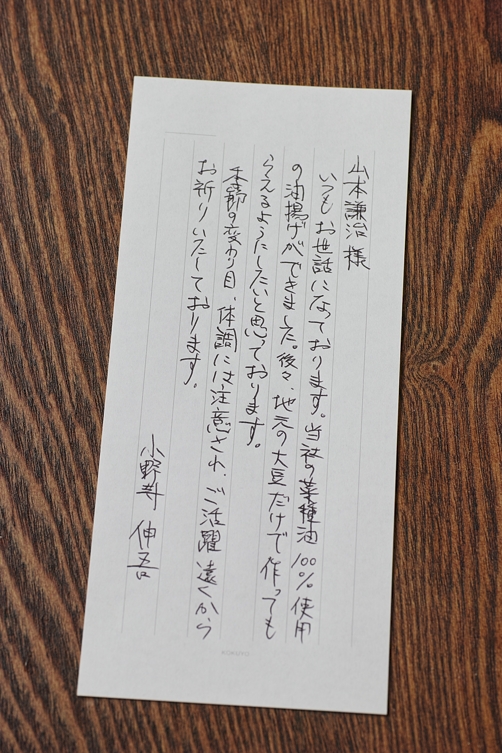 山本謙治 様
いつもお世話になっております。当社の菜種油100%使用
の油揚げができました。後々、地元の大豆だけで作っても
らえるようにしたいと思っております。
季節の変わり目、体調には注意され、ご活躍遠くから
お祈りいたしております。
小野寺 伸吾
KOKUYO